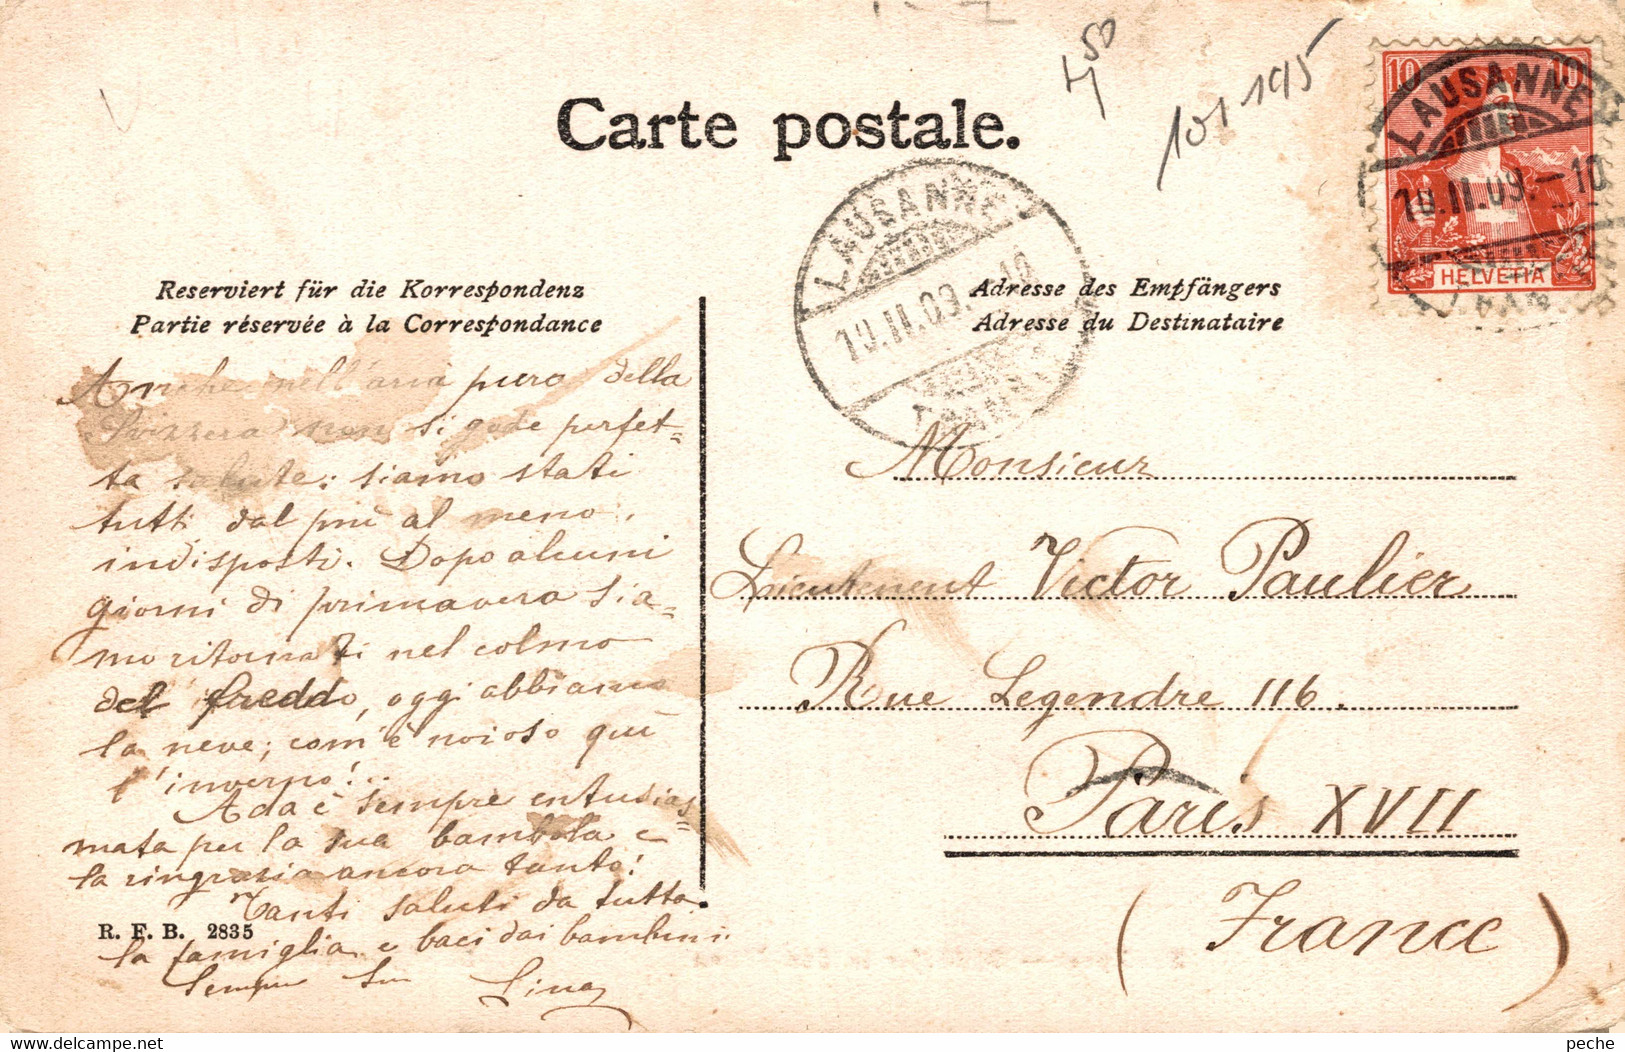 Carte postale.
4 50
101 195
10 10
LAUSANNE
10.II.09.-10
HELVETIA
LAUSANNE
10.II.09.-10
Reserviert für die Korrespondenz
Partie réservée à la Correspondance
Adresse des Empfängers
Adresse du Destinataire
Anche nell'aria pura della
Svizzera non si gode perfet=
ta salute: siamo stati
tutti dal più al meno,
indisposti. Dopo alcuni
giorni di primavera sia=
mo ritornati nel colmo
del freddo, oggi abbiamo
la neve; com'è noioso qui
l'inverno!..
Ada è sempre entusias=
mata per la sua bambola e
la ringrazia ancora tanto!
Tanti saluti da tutta
la famiglia e baci dai bambini.
Sempre Sua Lina
R. F. B. 2835
Monsieur
Lieutenent Victor Paulier
Rue Legendre 116.
Paris XVII
(France)
peche